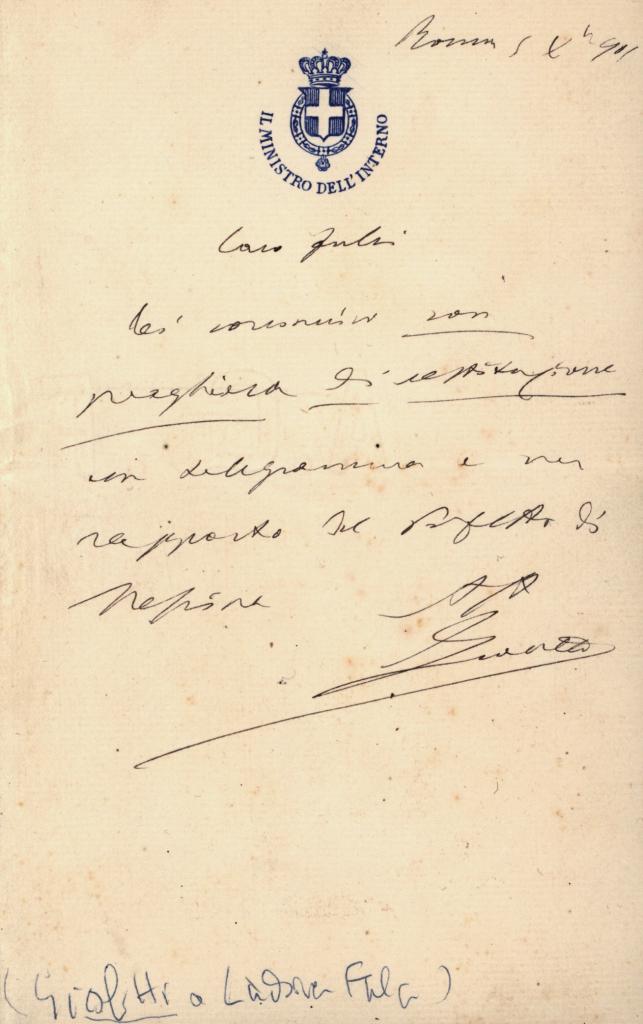 Roma 5 Xbre 901
IL MINISTRO DELL'INTERNO
Caro Fulci
Ti comunico con
preghiera di restituzione
un telegramma e un
rapporto del Prefetto di
Messina Aff
Giolitti
(Giolitti a Ludovico Fulci)